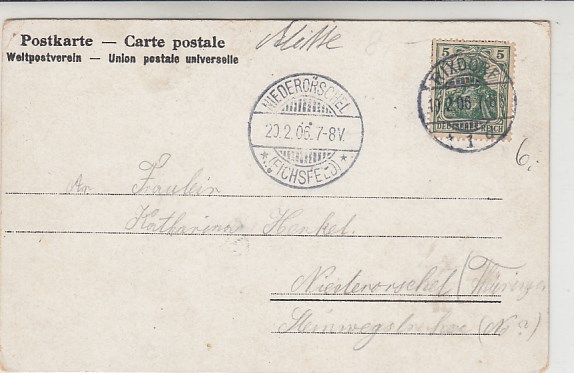 Postkarte — Carte postale
Weltpostverein — Union postale universelle
5 5
RIXDORF
2.06
* 1 g
DEUTSCHES REICH
NIEDERORSCHEL
20.2.06.7-8V.
* (EICHSFELD) *
6.
An Fräulein
Katharina Henkel.
Niederorschel (Thüringen
Steinwegstrasse (No ?)